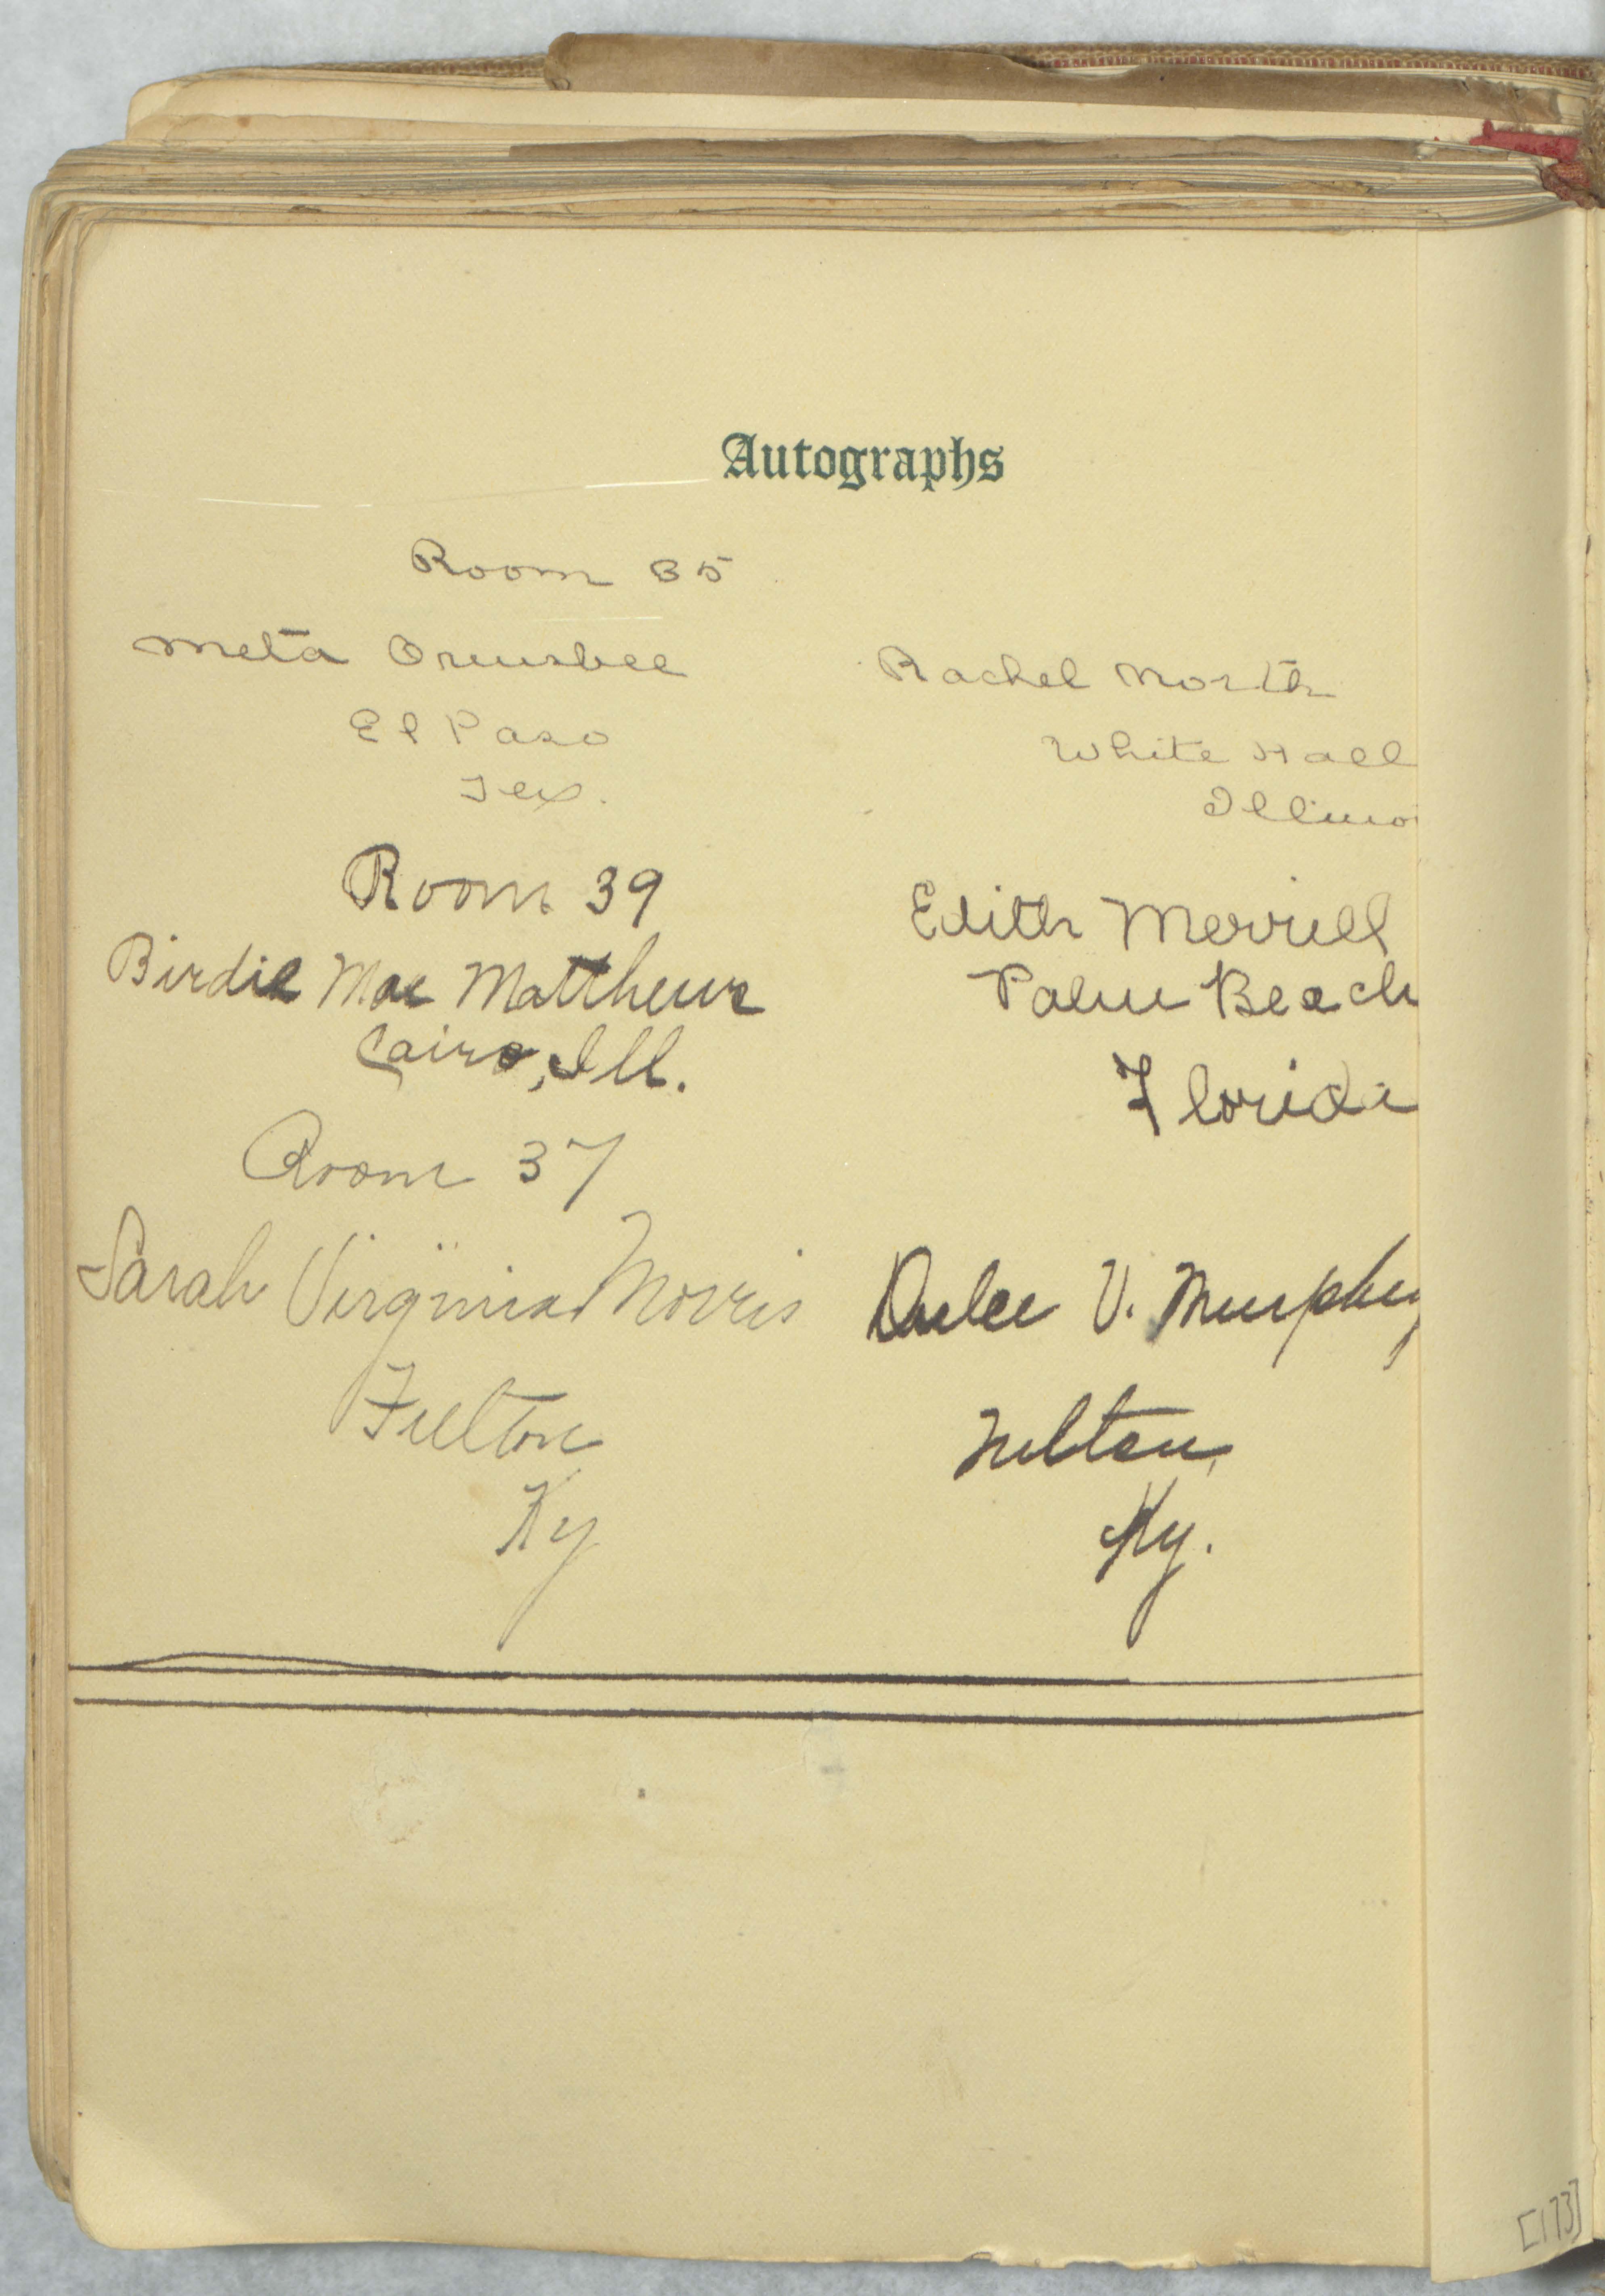 Autographs
Room 35
Meta Ormsbee
El Paso
Tex.
Rachel North
White Hall
Illinoi
Room 39
Birdie Mae Matthews
Cairo, Ill.
Edith Merrill
Palm Beach
Florida
Room 37
Sarah Virginia Morris
Fulton
Ky
V. Murphy
Fulton,
Ky.
[173]